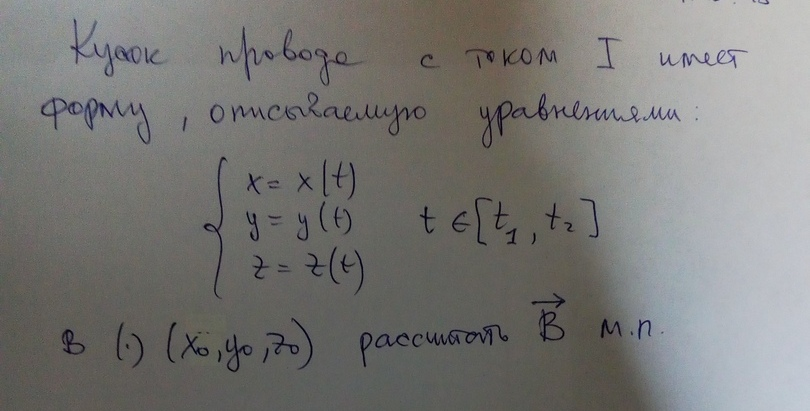 Кусок провода с током I имеет
форму, описываемую уравнениями:
x = x(t)
y = y(t) t ∈ [t₁, t₂]
z = z(t)
В (·) (x₀, y₀, z₀) рассчитать B⃗ м.п.